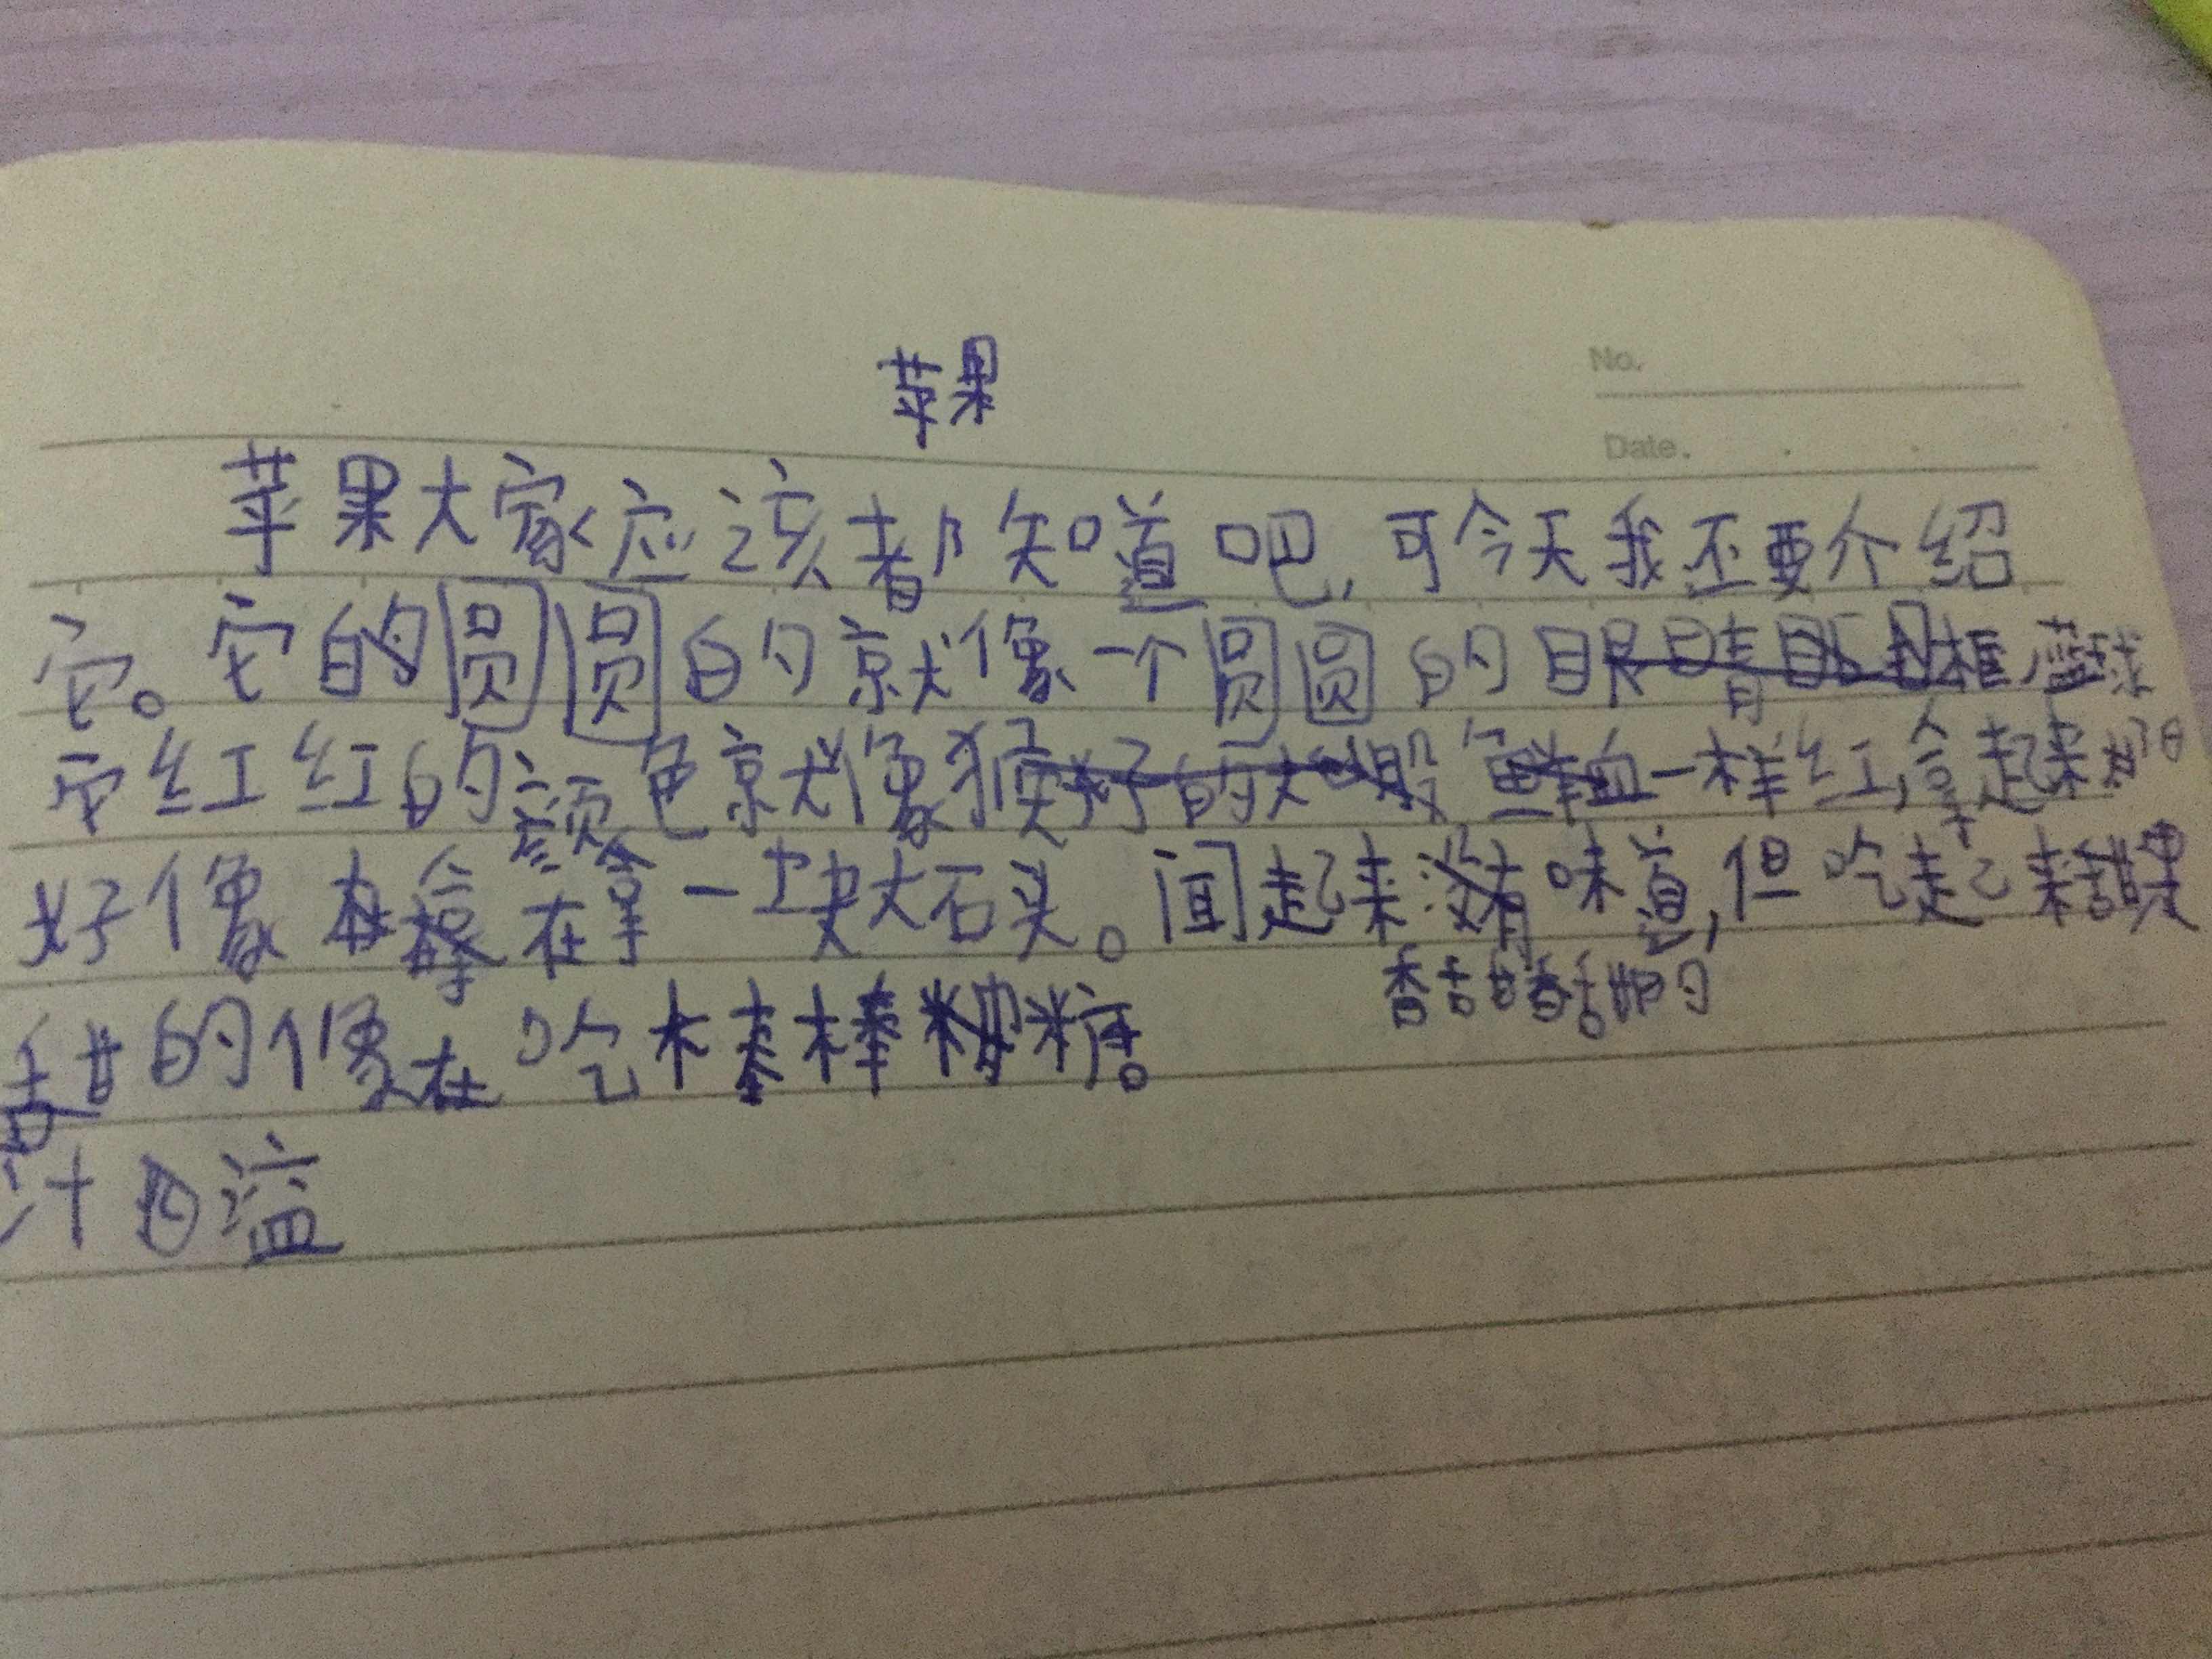 苹果
No.
Date.
苹果大家应该都知道吧,可今天我还要介绍
它。它的圆圆的就像一个圆圆的眼睛框,蓝球
它红红的颜色就像猴子的大 股鲜血一样红,拿起来
好像在拿一块大石头。闻起来没有味道,但吃起来甜果
香甜香甜的
甜的像在吃棒棒糖。
汁 溢